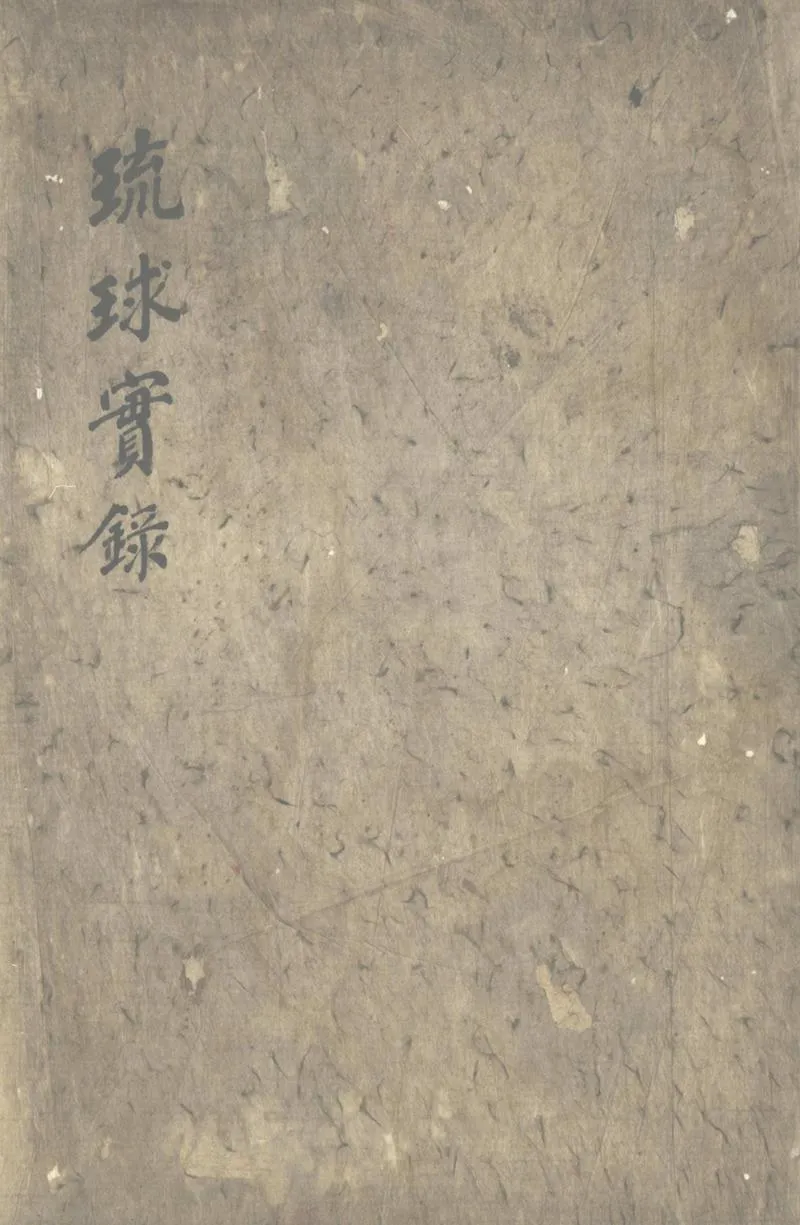 琉球實錄